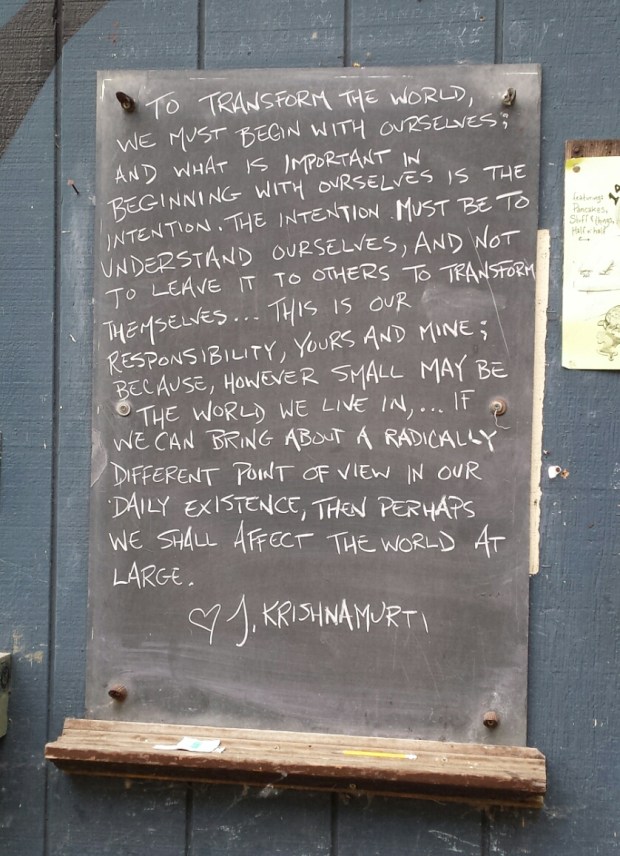 TO TRANSFORM THE WORLD,
WE MUST BEGIN WITH OURSELVES;
AND WHAT IS IMPORTANT IN
BEGINNING WITH OURSELVES IS THE
INTENTION. THE INTENTION MUST BE TO
UNDERSTAND OURSELVES, AND NOT
TO LEAVE IT TO OTHERS TO TRANSFORM
THEMSELVES... THIS IS OUR
RESPONSIBILITY, YOURS AND MINE;
BECAUSE, HOWEVER SMALL MAY BE
THE WORLD WE LIVE IN,... IF
WE CAN BRING ABOUT A RADICALLY
DIFFERENT POINT OF VIEW IN OUR
DAILY EXISTENCE, THEN PERHAPS
WE SHALL AFFECT THE WORLD AT
LARGE.
♡ J. KRISHNAMURTI
featuring
Pancakes,
Half n half